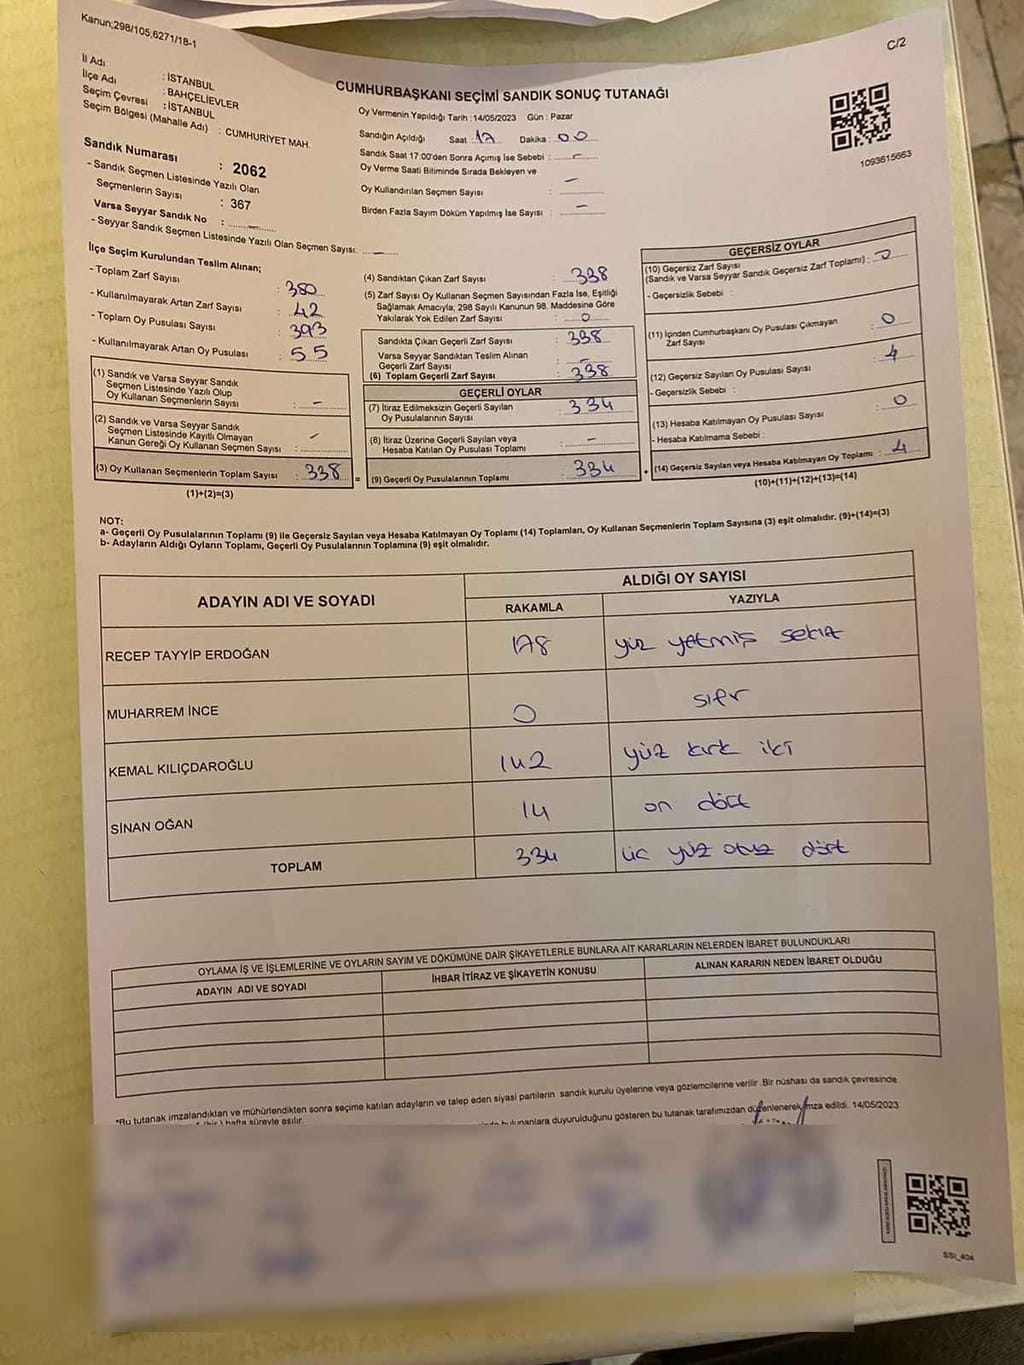 Kanun;298/105,6271/18-1
C/2
İl Adı : İSTANBUL
İlçe Adı : BAHÇELİEVLER
Seçim Çevresi : İSTANBUL
Seçim Bölgesi (Mahalle Adı) : CUMHURİYET MAH.
Sandık Numarası : 2062
- Sandık Seçmen Listesinde Yazılı Olan
Seçmenlerin Sayısı : 367
Varsa Seyyar Sandık No : -
- Seyyar Sandık Seçmen Listesinde Yazılı Olan Seçmen Sayısı: -
CUMHURBAŞKANI SEÇİMİ SANDIK SONUÇ TUTANAĞI
Oy Vermenin Yapıldığı Tarih : 14/05/2023 Gün : Pazar
Sandığın Açıldığı Saat : 17 Dakika : 00
Sandık Saat 17:00'den Sonra Açımış İse Sebebi : -
Oy Verme Saati Bitiminde Sırada Bekleyen ve
Oy Kullandırılan Seçmen Sayısı : -
Birden Fazla Sayım Döküm Yapılmış İse Sayısı : -
1093615663
İlçe Seçim Kurulundan Teslim Alınan;
- Toplam Zarf Sayısı : 380
- Kullanılmayarak Artan Zarf Sayısı : 42
- Toplam Oy Pusulası Sayısı : 393
- Kullanılmayarak Artan Oy Pusulası : 55
(1) Sandık ve Varsa Seyyar Sandık
Seçmen Listesinde Yazılı Olup
Oy Kullanan Seçmenlerin Sayısı : -
(2) Sandık ve Varsa Seyyar Sandık
Seçmen Listesinde Kayıtlı Olmayan
Kanun Gereği Oy Kullanan Seçmen Sayısı : -
(3) Oy Kullanan Seçmenlerin Toplam Sayısı : 338
(1)+(2)=(3)
(4) Sandıktan Çıkan Zarf Sayısı : 338
(5) Zarf Sayısı Oy Kullanan Seçmen Sayısından Fazla İse, Eşitliği
Sağlamak Amacıyla; 298 Sayılı Kanunun 98. Maddesine Göre
Yakılarak Yok Edilen Zarf Sayısı : 0
Sandıkta Çıkan Geçerli Zarf Sayısı : 338
Varsa Seyyar Sandıktan Teslim Alınan
Geçerli Zarf Sayısı : -
(6) Toplam Geçerli Zarf Sayısı : 338
GEÇERLİ OYLAR
(7) İtiraz Edilmeksizin Geçerli Sayılan
Oy Pusulalarının Sayısı : 334
(8) İtiraz Üzerine Geçerli Sayılan veya
Hesaba Katılan Oy Pusulası Toplamı : -
= (9) Geçerli Oy Pusulalarının Toplamı : 334
GEÇERSİZ OYLAR
(10) Geçersiz Zarf Sayısı
(Sandık ve Varsa Seyyar Sandık Geçersiz Zarf Toplamı) : 0
- Geçersizlik Sebebi :
(11) İçinden Cumhurbaşkanı Oy Pusulası Çıkmayan
Zarf Sayısı : 0
(12) Geçersiz Sayılan Oy Pusulası Sayısı : 4
- Geçersizlik Sebebi :
(13) Hesaba Katılmayan Oy Pusulası Sayısı : 0
- Hesaba Katılmama Sebebi :
+ (14) Geçersiz Sayılan veya Hesaba Katılmayan Oy Toplamı : 4
(10)+(11)+(12)+(13)=(14)
NOT:
a- Geçerli Oy Pusulalarının Toplamı (9) ile Geçersiz Sayılan veya Hesaba Katılmayan Oy Toplamı (14) Toplamları, Oy Kullanan Seçmenlerin Toplam Sayısına (3) eşit olmalıdır. (9)+(14)=(3)
b- Adayların Aldığı Oyların Toplamı, Geçerli Oy Pusulalarının Toplamına (9) eşit olmalıdır.
ADAYIN ADI VE SOYADI
ALDIĞI OY SAYISI
RAKAMLA YAZIYLA
RECEP TAYYİP ERDOĞAN 178 yüz yetmiş sekiz
MUHARREM İNCE 0 sıfır
KEMAL KILIÇDAROĞLU 142 yüz kırk iki
SİNAN OĞAN 14 on dört
TOPLAM 334 üç yüz otuz dört
OYLAMA İŞ VE İŞLEMLERİNE VE OYLARIN SAYIM VE DÖKÜMÜNE DAİR ŞİKAYETLERLE BUNLARA AİT KARARLARIN NELERDEN İBARET BULUNDUKLARI
ADAYIN ADI VE SOYADI İHBAR İTİRAZ VE ŞİKAYETİN KONUSU ALINAN KARARIN NEDEN İBARET OLDUĞU
*Bu tutanak imzalandıktan ve mühürlendikten sonra seçime katılan adayların ve talep eden siyasi partilerin sandık kurulu üyelerine veya gözlemcilerine verilir. Bir nüshası da sandık çevresinde
(bir) hafta süreyle asılır.
bulunanlara duyurulduğunu gösteren bu tutanak tarafımızdan düzenlenerek imza edildi. 14/05/2023
SSI_404